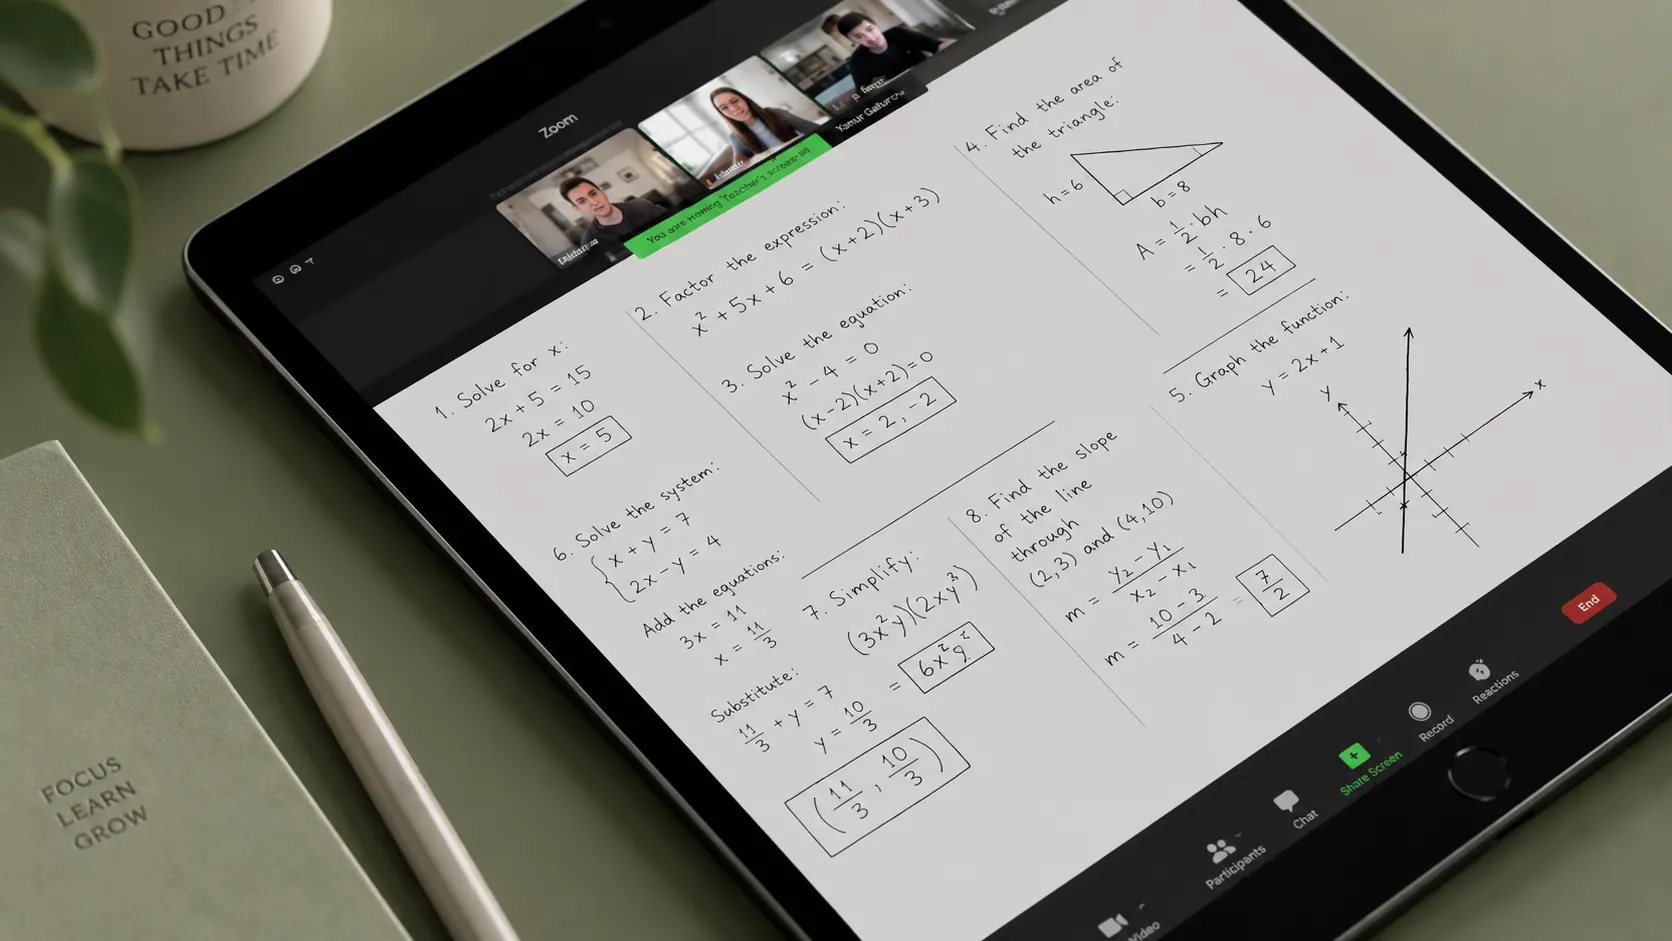 GOOD
THINGS
TAKE TIME
Zoom
You are viewing Teacher's screen
1. Solve for x:
2x + 5 = 15
2x = 10
x = 5
2. Factor the expression:
x² + 5x + 6 = (x + 2)(x + 3)
3. Solve the equation:
x² - 4 = 0
(x-2)(x+2) = 0
x = 2, -2
4. Find the area of
the triangle:
h = 6
b = 8
A = 1/2 · bh
= 1/2 · 8 · 6
= 24
5. Graph the function:
y = 2x + 1
y
x
6. Solve the system:
x + y = 7
2x - y = 4
Add the equations:
3x = 11
x = 11/3
Substitute:
11/3 + y = 7
y = 10/3
(11/3, 10/3)
7. Simplify:
(3x²y)(2xy³)
= 6x²
8. Find the slope
of the line
through
(2,3) and (4,10)
m = y₂ - y₁ / x₂ - x₁
m = 10 - 3 / 4 - 2 = 7/2
End
Reactions
Record
Share Screen
Chat
Participants
Video
FOCUS
LEARN
GROW